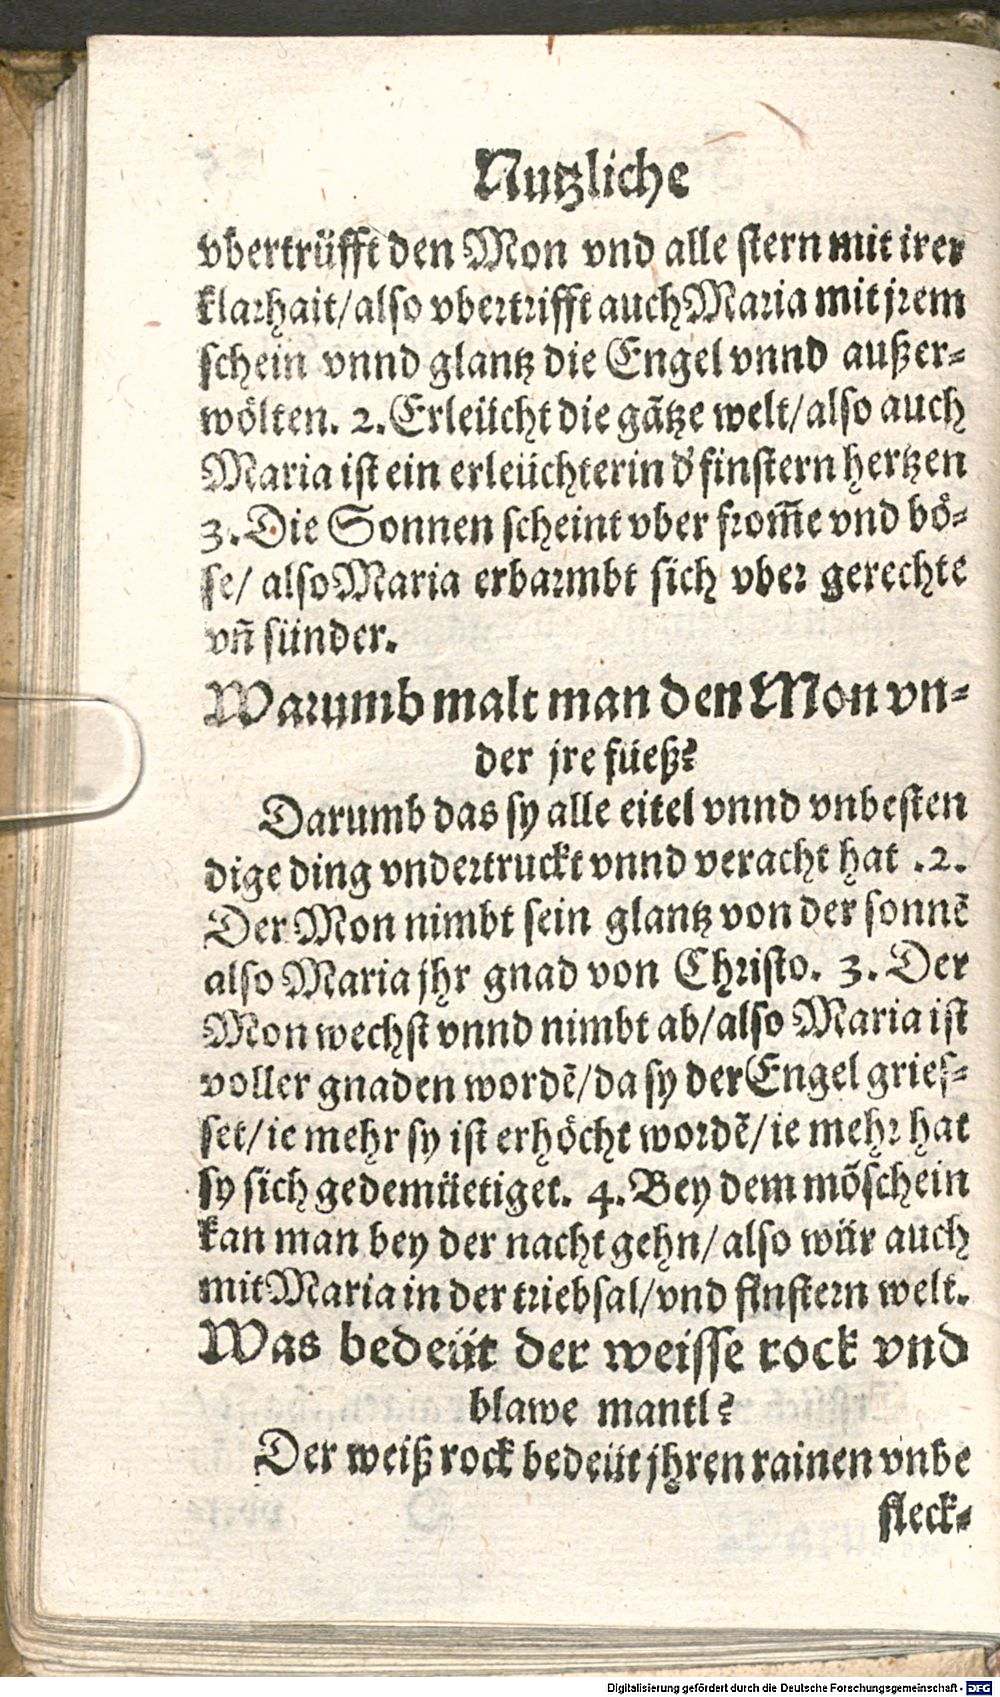 Nutzliche
vbertrüfft den Mon vnd alle stern mit irer
klarhait/also vbertrifft auch Maria mit jrem
schein vnnd glantz die Engel vnnd außer-
wölten. 2. Erleücht die gãtze welt/also auch
Maria ist ein erleüchterin d' finstern hertzen
3. Die Sonnen scheint vber from̃e vnd bö-
se/ also Maria erbarmbt sich vber gerechte
vñ sünder.
Warumb malt man den Mon vn-
der jre füeß?
Darumb das sy alle eitel vnnd vnbesten
dige ding vndertruckt vnnd veracht hat .2.
Der Mon nimbt sein glantz von der sonnẽ
also Maria jhr gnad von Christo. 3. Der
Mon wechst vnnd nimbt ab/also Maria ist
voller gnaden wordẽ/da sy der Engel gries-
set/ie mehr sy ist erhöcht wordẽ/ie mehr hat
sy sich gedemüetiget. 4. Bey dem mõschein
kan man bey der nacht gehn/also wür auch
mit Maria in der triebsal/vnd finstern welt.
Was bedeüt der weisse rock vnd
blawe mantl?
Der weiß rock bedeüt jhren rainen vnbe
fleck-
Digitalisierung gefördert durch die Deutsche Forschungsgemeinschaft - DFG